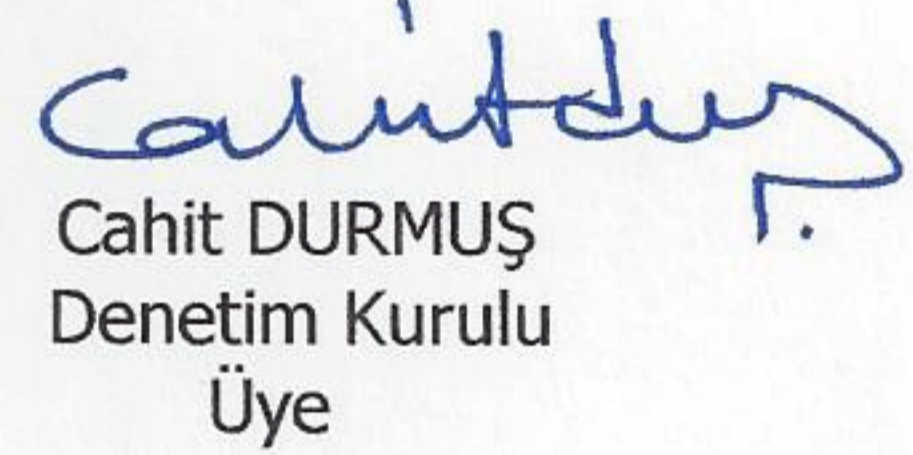 Cahit DURMUŞ
Denetim Kurulu
Üye